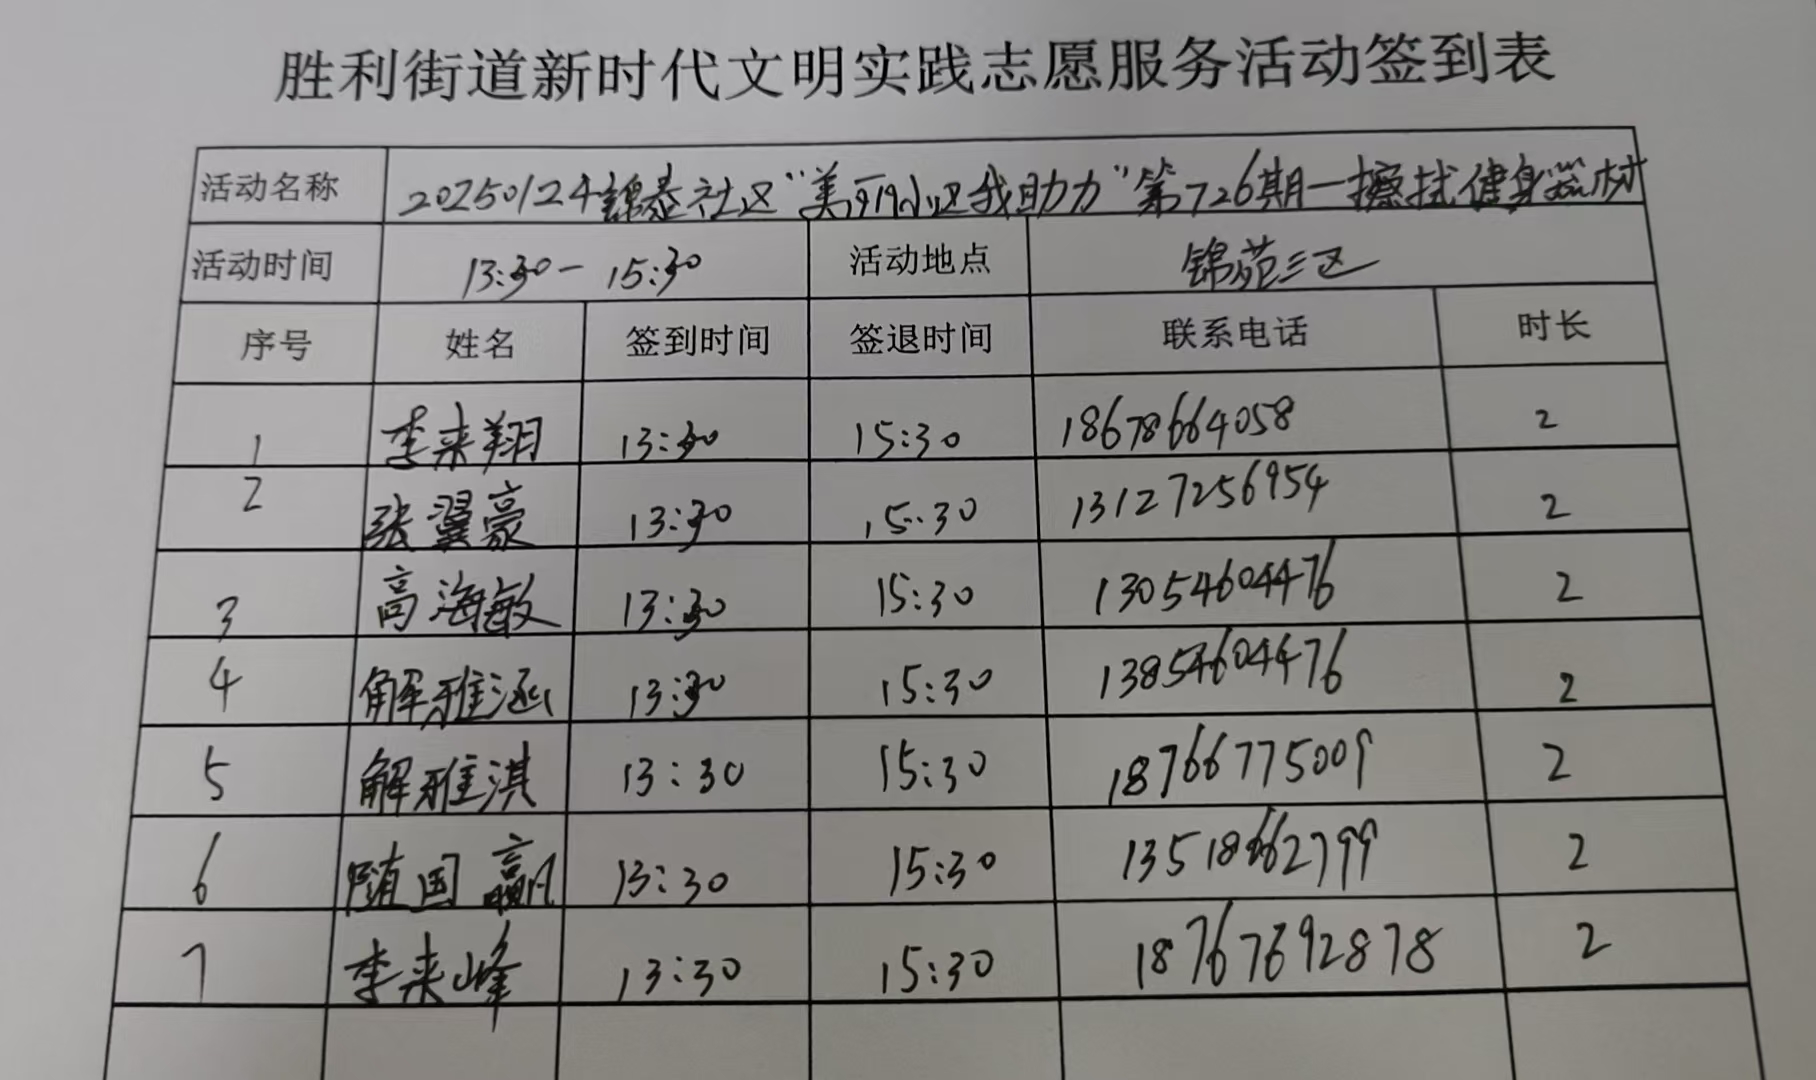 胜利街道新时代文明实践志愿服务活动签到表
活动名称 20250124锦泰社区“美丽小区我助力”第726期—擦拭健身器材
活动时间 13:30- 15:30 活动地点 锦苑三区
序号 姓名 签到时间 签退时间 联系电话 时长
1 李来翔 13:30 15:30 18678664058 2
2 张翼豪 13:30 15:30 13127256954 2
3 高海敏 13:30 15:30 13054604476 2
4 解雅涵 13:30 15:30 13854604476 2
5 解雅淇 13:30 15:30 18766775009 2
6 随国赢 13:30 15:30 13518662799 2
7 李来峰 13:30 15:30 18767692878 2